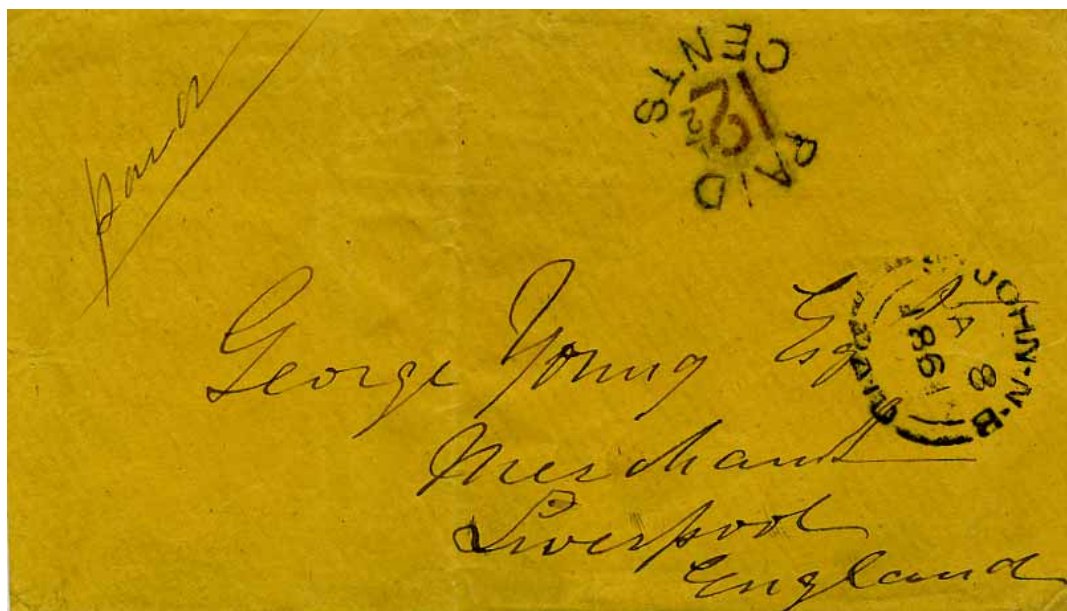 paid
PAID
12½
CENTS
JOHN·N·B
JA 8
1861
George Young Esq
Merchant
Liverpool
England